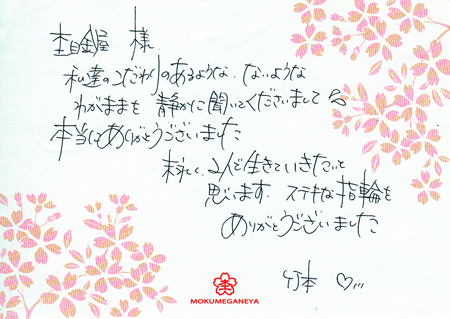 杢目金屋 様
私達のこだわりのあるような、ないような
わがままを 静かに聞いてくださいまして
本当にありがとうございました
楽しく、2人で生きていきたいと
思います。ステキな指輪を
ありがとうございました
竹本 ♡...
MOKUMEGANEYA